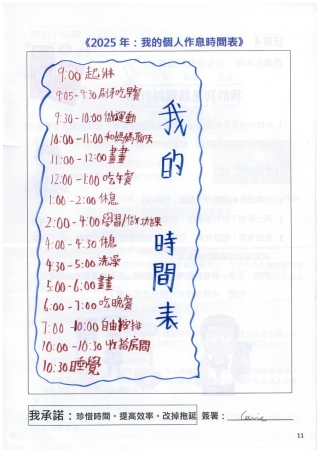 《2025 年：我的個人作息時間表》
9:00 起牀
9:05-9:30 刷牙吃早餐
9:30-10:00 做運動
10:00-11:00 和媽媽聊天
11:00-12:00 畫畫
12:00-1:00 吃午餐
1:00-2:00 休息
2:00-4:00 學習/做功課
4:00-4:30 休息
4:30-5:00 洗澡
5:00-6:00 畫畫
6:00-7:00 吃晚餐
7:00-10:00 自由安排
10:00-10:30 收拾房間
10:30 睡覺
我的時間表
我承諾：珍惜時間，提高效率，改掉拖延 簽署：
11